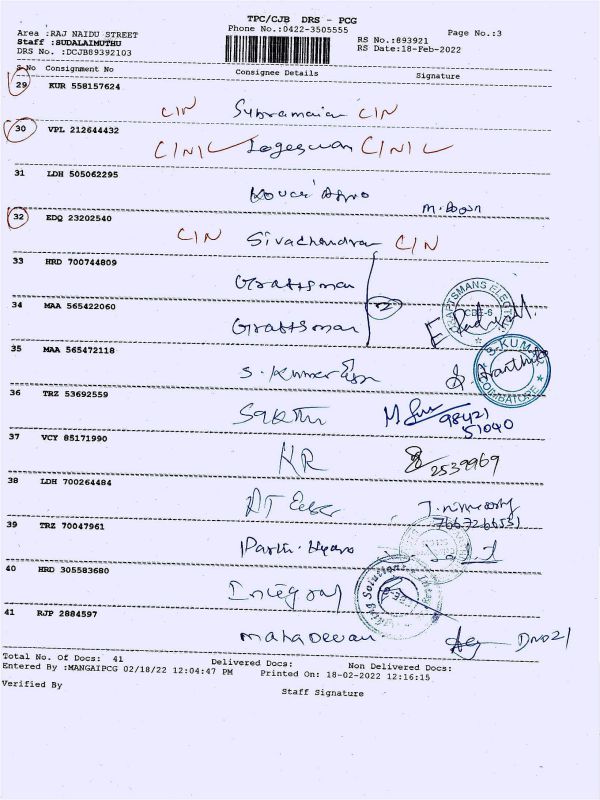 TPC/CJB DRS - PCG
Phone No.:0422-3505555 Page No.:3
Area :RAJ NAIDU STREET
Staff :SUDALAIMUTHU RS No.:893921
DRS No. :DCJB89392103 RS Date:18-Feb-2022
S.No Consignment No Consignee Details Signature
29 KUR 558157624
CIN Subramaian CIN
30 VPL 212644432
C/N/L Logeswan C/N/L
31 LDH 505062295
32 EDQ 23202540
CIN Sivachandran CIN
33 HRD 700744809
Graftsman
34 MAA 565422060
Graftsman
CRAFTSMANS ELECTR
CBE-6
35 MAA 565472118
S. Kumar
S.KUMA
COIMBATORE
36 TRZ 53692559
Sakthi 98421
51040
37 VCY 85171990
KR 2539969
38 LDH 700264484
39 TRZ 70047961
40 HRD 305583680
Integral
Solutions
41 RJP 2884597
mahadevan
Total No. of Docs: 41 Delivered Docs: Non Delivered Docs:
Entered By :MANGAIPCG 02/18/22 12:04:47 PM Printed On: 18-02-2022 12:16:15
Verified By Staff Signature